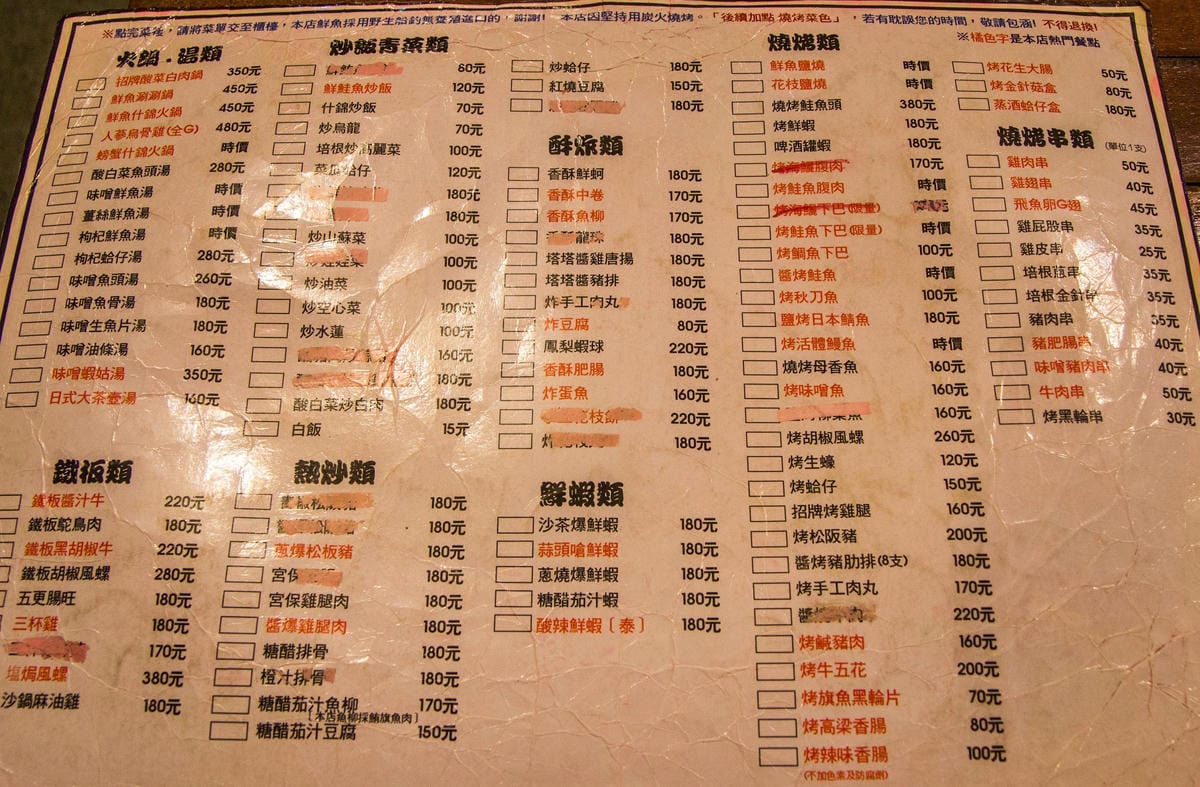 ※點完菜後，請將菜單交至櫃檯，本店鮮魚採用野生船釣無養殖進口的，謝謝! 本店因堅持用炭火燒烤。「後續加點 燒烤菜色」，若有耽誤您的時間，敬請包涵! 不得退換!
※橘色字是本店熱門餐點
火鍋．湯類
招牌酸菜白肉鍋 350元
鮮魚涮涮鍋 450元
鮮魚什錦火鍋 450元
人蔘烏骨雞(全G) 480元
螃蟹什錦火鍋 時價
酸白菜魚頭湯 280元
味噌鮮魚湯 時價
薑絲鮮魚湯 時價
枸杞鮮魚湯 時價
枸杞蛤仔湯 280元
味噌魚頭湯 260元
味噌魚骨湯 180元
味噌生魚片湯 180元
味噌油條湯 160元
味噌蝦姑湯 350元
日式大茶壺湯 160元
炒飯青菜類
60元
鮮鮭魚炒飯 120元
什錦炒飯 70元
炒烏龍 70元
培根炒高麗菜 100元
菜瓜蛤仔 120元
180元
180元
炒山蘇菜 100元
100元
炒油菜 100元
炒空心菜 100元
炒水蓮 100元
160元
180元
酸白菜炒白肉 180元
白飯 15元
炒蛤仔 180元
紅燒豆腐 150元
180元
酥炸類
香酥鮮蚵 180元
香酥中卷 170元
香酥魚柳 170元
龍珠 180元
塔塔醬雞唐揚 180元
塔塔醬豬排 180元
炸手工肉丸 180元
炸豆腐 80元
鳳梨蝦球 220元
香酥肥腸 180元
炸蛋魚 160元
花枝餅 220元
炸 180元
燒烤類
鮮魚鹽燒 時價
花枝鹽燒 時價
燒烤鮭魚頭 380元
烤鮮蝦 180元
啤酒罐蝦 180元
烤海鱺腹肉 170元
烤鮭魚腹肉 時價
烤海鱺下巴(限量)
烤鮭魚下巴(限量) 時價
烤鯛魚下巴 100元
醬烤鮭魚 時價
烤秋刀魚 100元
鹽烤日本鯖魚 180元
烤活體鰻魚 時價
燒烤母香魚 160元
烤味噌魚 160元
160元
烤胡椒風螺 260元
烤生蠔 120元
烤蛤仔 150元
招牌烤雞腿 160元
烤松阪豬 200元
醬烤豬肋排(8支) 180元
烤手工肉丸 170元
醬 220元
烤鹹豬肉 160元
烤牛五花 200元
烤旗魚黑輪片 70元
烤高梁香腸 80元
烤辣味香腸 100元
(不加色素及防腐劑)
烤花生大腸 50元
烤金針菇盒 80元
蒸酒蛤仔盒 180元
燒烤串類 (單位1支)
雞肉串 50元
雞翅串 40元
飛魚卵G翅 45元
雞屁股串 35元
雞皮串 25元
培根蔥串 35元
培根金針串 35元
豬肉串 35元
豬肥腸串 40元
味噌豬肉串 40元
牛肉串 50元
烤黑輪串 30元
鐵板類
鐵板醬汁牛 220元
鐵板鴕鳥肉 180元
鐵板黑胡椒牛 220元
鐵板胡椒風螺 280元
五更腸旺 180元
三杯雞 180元
170元
塩焗風螺 380元
沙鍋麻油雞 180元
熱炒類
180元
180元
蔥爆松板豬 180元
宮保 180元
宮保雞腿肉 180元
醬爆雞腿肉 180元
糖醋排骨 180元
橙汁排骨 180元
糖醋茄汁魚柳 170元
〔本店魚柳採鮪旗魚肉〕
糖醋茄汁豆腐 150元
鮮蝦類
沙茶爆鮮蝦 180元
蒜頭嗆鮮蝦 180元
蔥燒爆鮮蝦 180元
糖醋茄汁蝦 180元
酸辣鮮蝦〔泰〕 180元